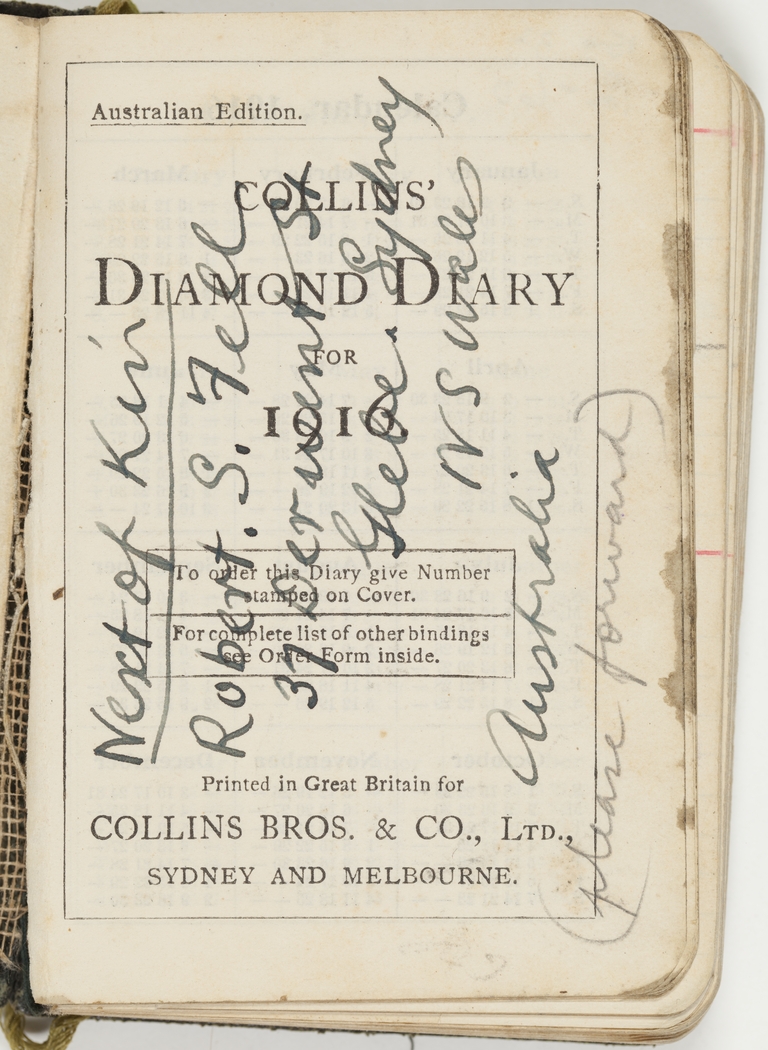 Australian Edition.
COLLINS'
DIAMOND DIARY
FOR
1916.
To order this Diary give Number
stamped on Cover.
For complete list of other bindings
see Order Form inside.
Printed in Great Britain for
COLLINS BROS. & CO., LTD.,
SYDNEY AND MELBOURNE.
Next of Kin
Robert. S. Fell
37 Derwent St
Glebe. Sydney
N S Wales
Australia
(please forward)